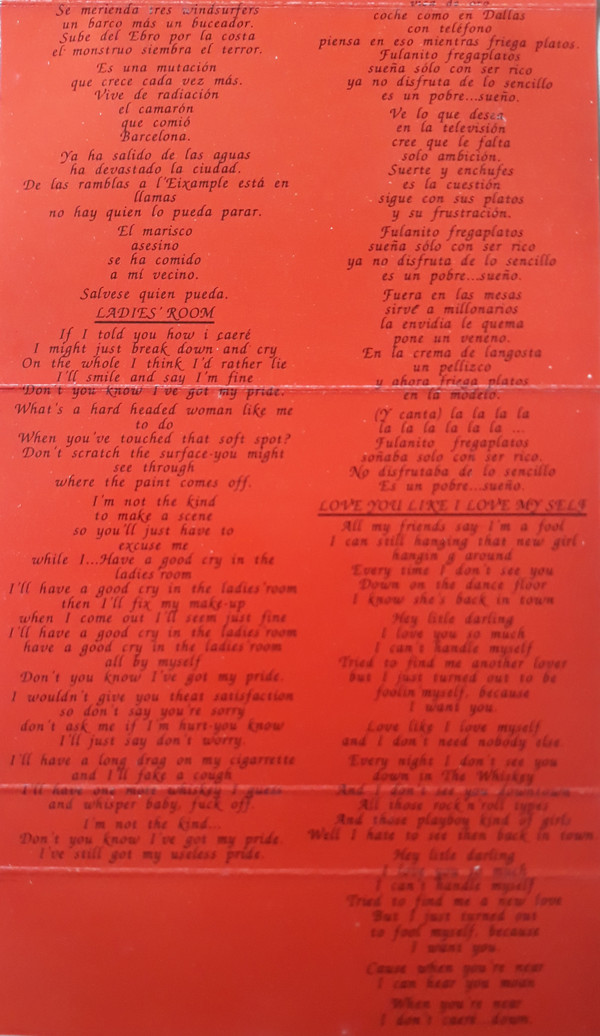 Se merienda tres windsurfers
un barco más un buceador.
Sube del Ebro por la costa
el monstruo siembra el terror.
Es una mutación
que crece cada vez más.
Vive de radiación
el camarón
que comió
Barcelona.
Ya ha salido de las aguas
ha devastado la ciudad.
De las ramblas a l'Eixample está en
llamas
no hay quien lo pueda parar.
El marisco
asesino
se ha comido
a mí vecino.
Salvese quien pueda.
LADIES' ROOM
If I told you how i caeré
I might just break down and cry
On the whole I think I'd rather lie
I'll smile and say I'm fine
Don't you know I've got my pride.
What's a hard headed woman like me
to do
When you've touched that soft spot?
Don't scratch the surface-you might
see through
where the paint comes off.
I'm not the kind
to make a scene
so you'll just have to
excuse me
while I...Have a good cry in the
ladies'room
I'll have a good cry in the ladies'room
then I'll fix my make-up
when I come out I'll seem just fine
I'll have a good cry in the ladies'room
have a good cry in the ladies'room
all by myself
Don't you know I've got my pride.
I wouldn't give you theat satisfaction
so don't say you're sorry
don't ask me if I'm hurt-you know
I'll just say don't worry.
I'll have a long drag on my cigarrette
and I'll fake a cough
I'll have one more whiskey I guess
and whisper baby, fuck off.
I'm not the kind...
Don't you know I've got my pride.
I've still got my useless pride.
coche como en Dallas
con teléfono
piensa en eso mientras friega platos.
Fulanito fregaplatos
sueña sólo con ser rico
ya no disfruta de lo sencillo
es un pobre...sueño.
Ve lo que desea
en la televisión
cree que le falta
solo ambición.
Suerte y enchufes
es la cuestión
sigue con sus platos
y su frustración.
Fulanito fregaplatos
sueña sólo con ser rico
ya no disfruta de lo sencillo
es un pobre...sueño.
Fuera en las mesas
sirve a millonarios
la envidia le quema
pone un veneno.
En la crema de langosta
un pellizco
y ahora friega platos
en la modelo.
(Y canta) la la la la
la la la la la ...
Fulanito fregaplatos
soñaba solo con ser rico.
No disfrutaba de lo sencillo
Es un pobre...sueño.
LOVE YOU LIKE I LOVE MY SELF
All my friends say I'm a fool
I can still hanging that new girl
hangin g around
Every time I don't see you
Down on the dance floor
I know she's back in town
Hey litle darling
I love you so much
I can't handle myself
Tried to find me another lover
but I just turned out to be
foolin'myself, because
I want you.
Love like I love myself
and I don't need nobody else.
Every night I don't see you
down in The Whiskey
And I don't see you downtown
All those rock'n'roll types
And those playboy kind of girls
Well I hate to see then back in town.
Hey litle darling
I love you so much
I can't handle myself
Tried to find me a new love
But I just turned out
to fool myself, because
I want you.
Cause when you're near
I can hear you moan
When you're near
I don't caere...down.